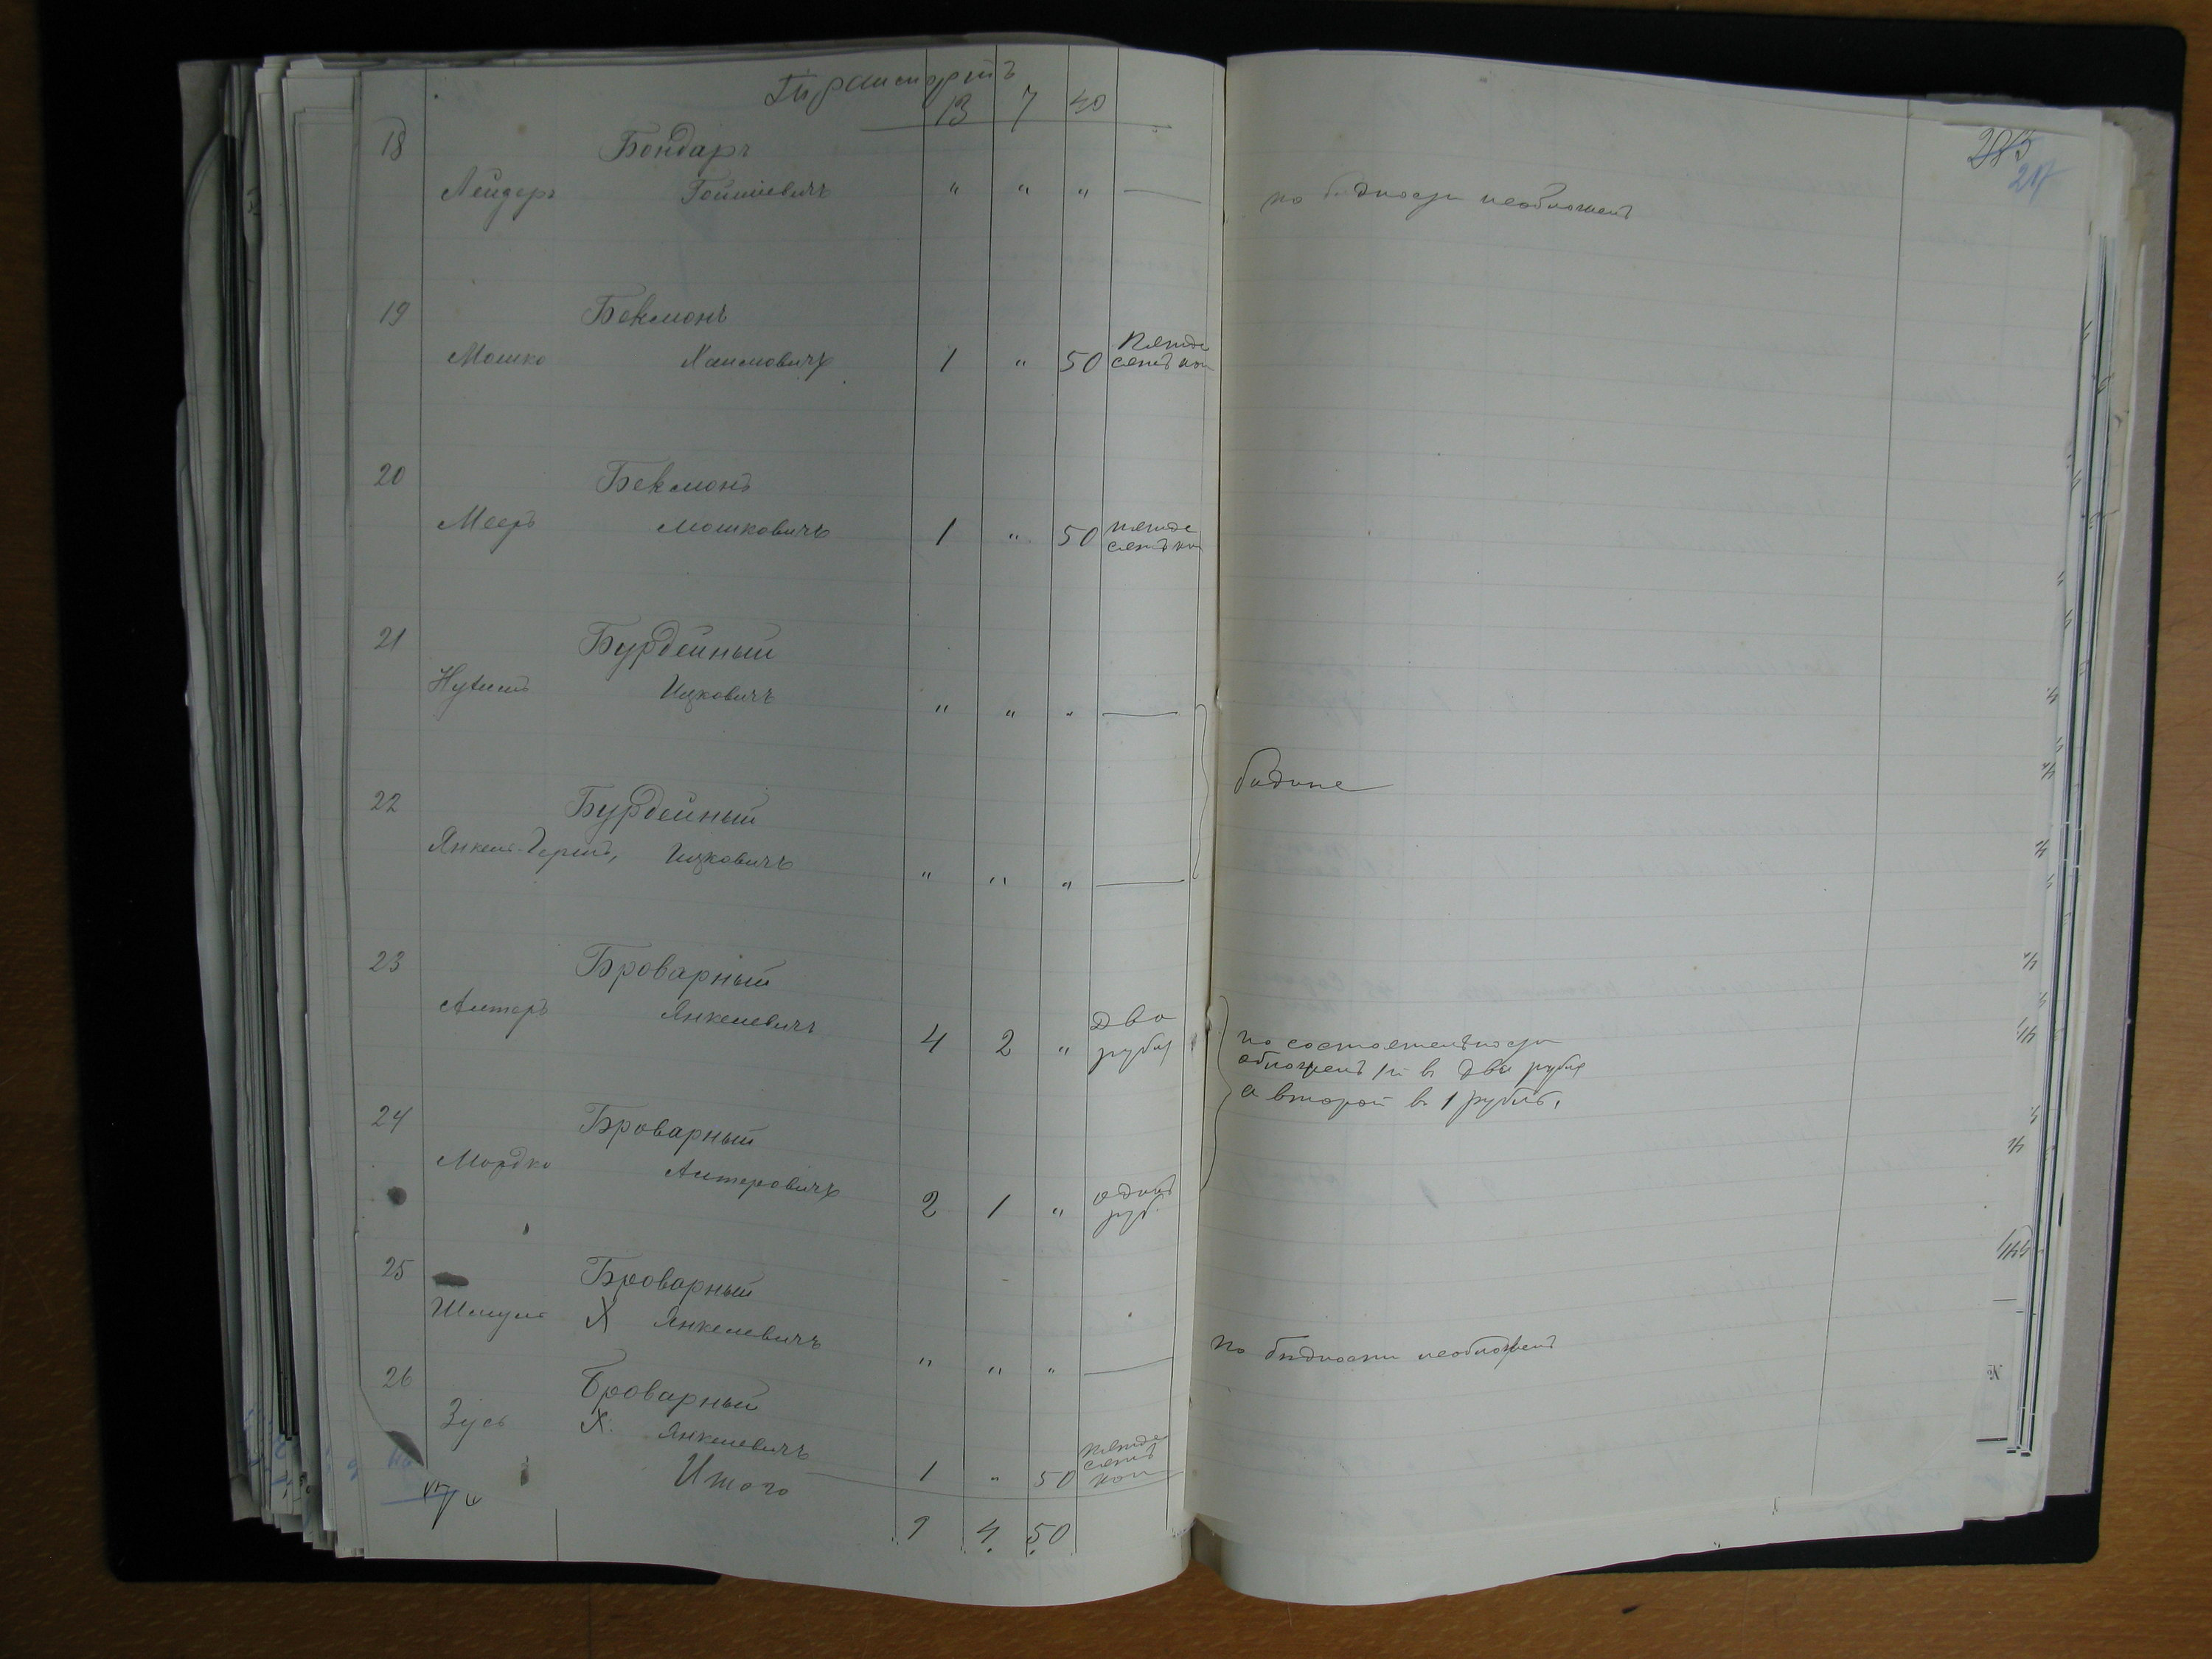 Транспортъ
13 7 40
18 Бондаръ
Лейдеръ " " " —
19 Бекмонъ
Мошко Хаимовичъ 1 " 50 Пятьде
сятъ коп
20 Бекмонъ
Мееръ Мошковичъ 1 " 50 пятьде
сятъ коп
21 Бурдейный
Ицковичъ " " " —
22 Бурдейный
Янкель-Гершъ, Ицковичъ " " " —
23 Броварный
Алтеръ Янкелевичъ 4 2 " Два
рубля
24 Броварный
Мордко Алтеровичъ 2 1 " один
руб.
25 Броварный
Шмуль X Янкелевичъ " " " —
26 Броварный
Зусь X. Янкелевичъ 1 " 50 пятьде
сятъ
коп
Итого
9 4. 50
213
217
по бѣдности необложенъ
бѣдные
по состоятельности
обложенъ 1й в два рубля
а второй в 1 рубль,
по бѣдности необложенъ